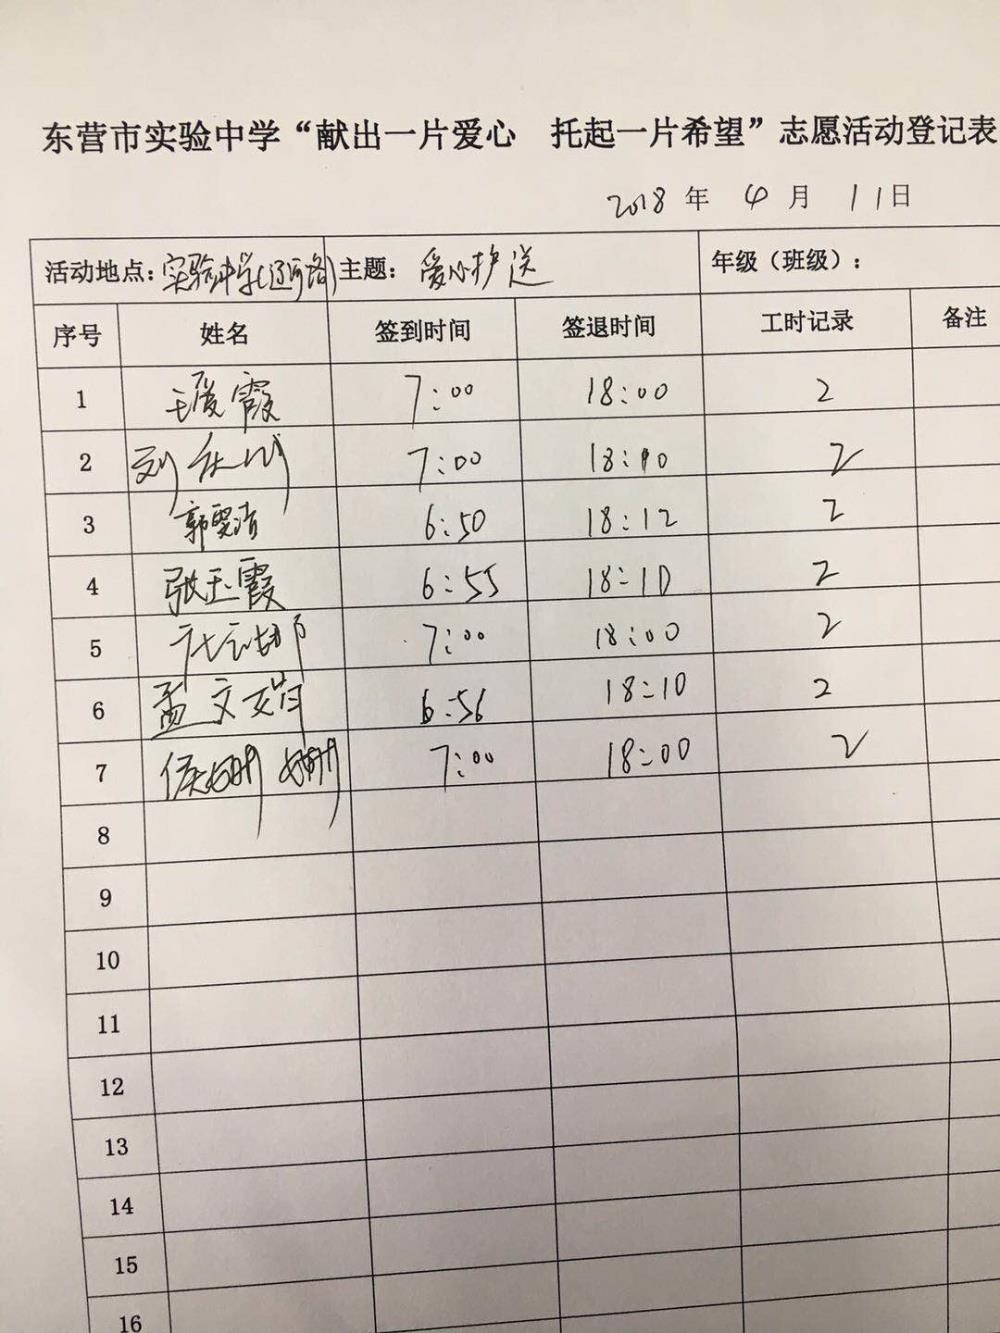 东营市实验中学“献出一片爱心 托起一片希望”志愿活动登记表
2018 年 4 月 11日
活动地点：实验中学(辽河路) 主题： 爱心护送 年级（班级）：
序号 姓名 签到时间 签退时间 工时记录 备注
1 霞 7:00 18:00 2
2 刘 7:00 18:10 2
3 郭雯清 6:50 18:12 2
4 张玉霞 6:55 18:10 2
5 7:00 18:00 2
6 孟文娟 6:56 18:10 2
7 侯姗姗 7:00 18:00 2
8
9
10
11
12
13
14
15
16